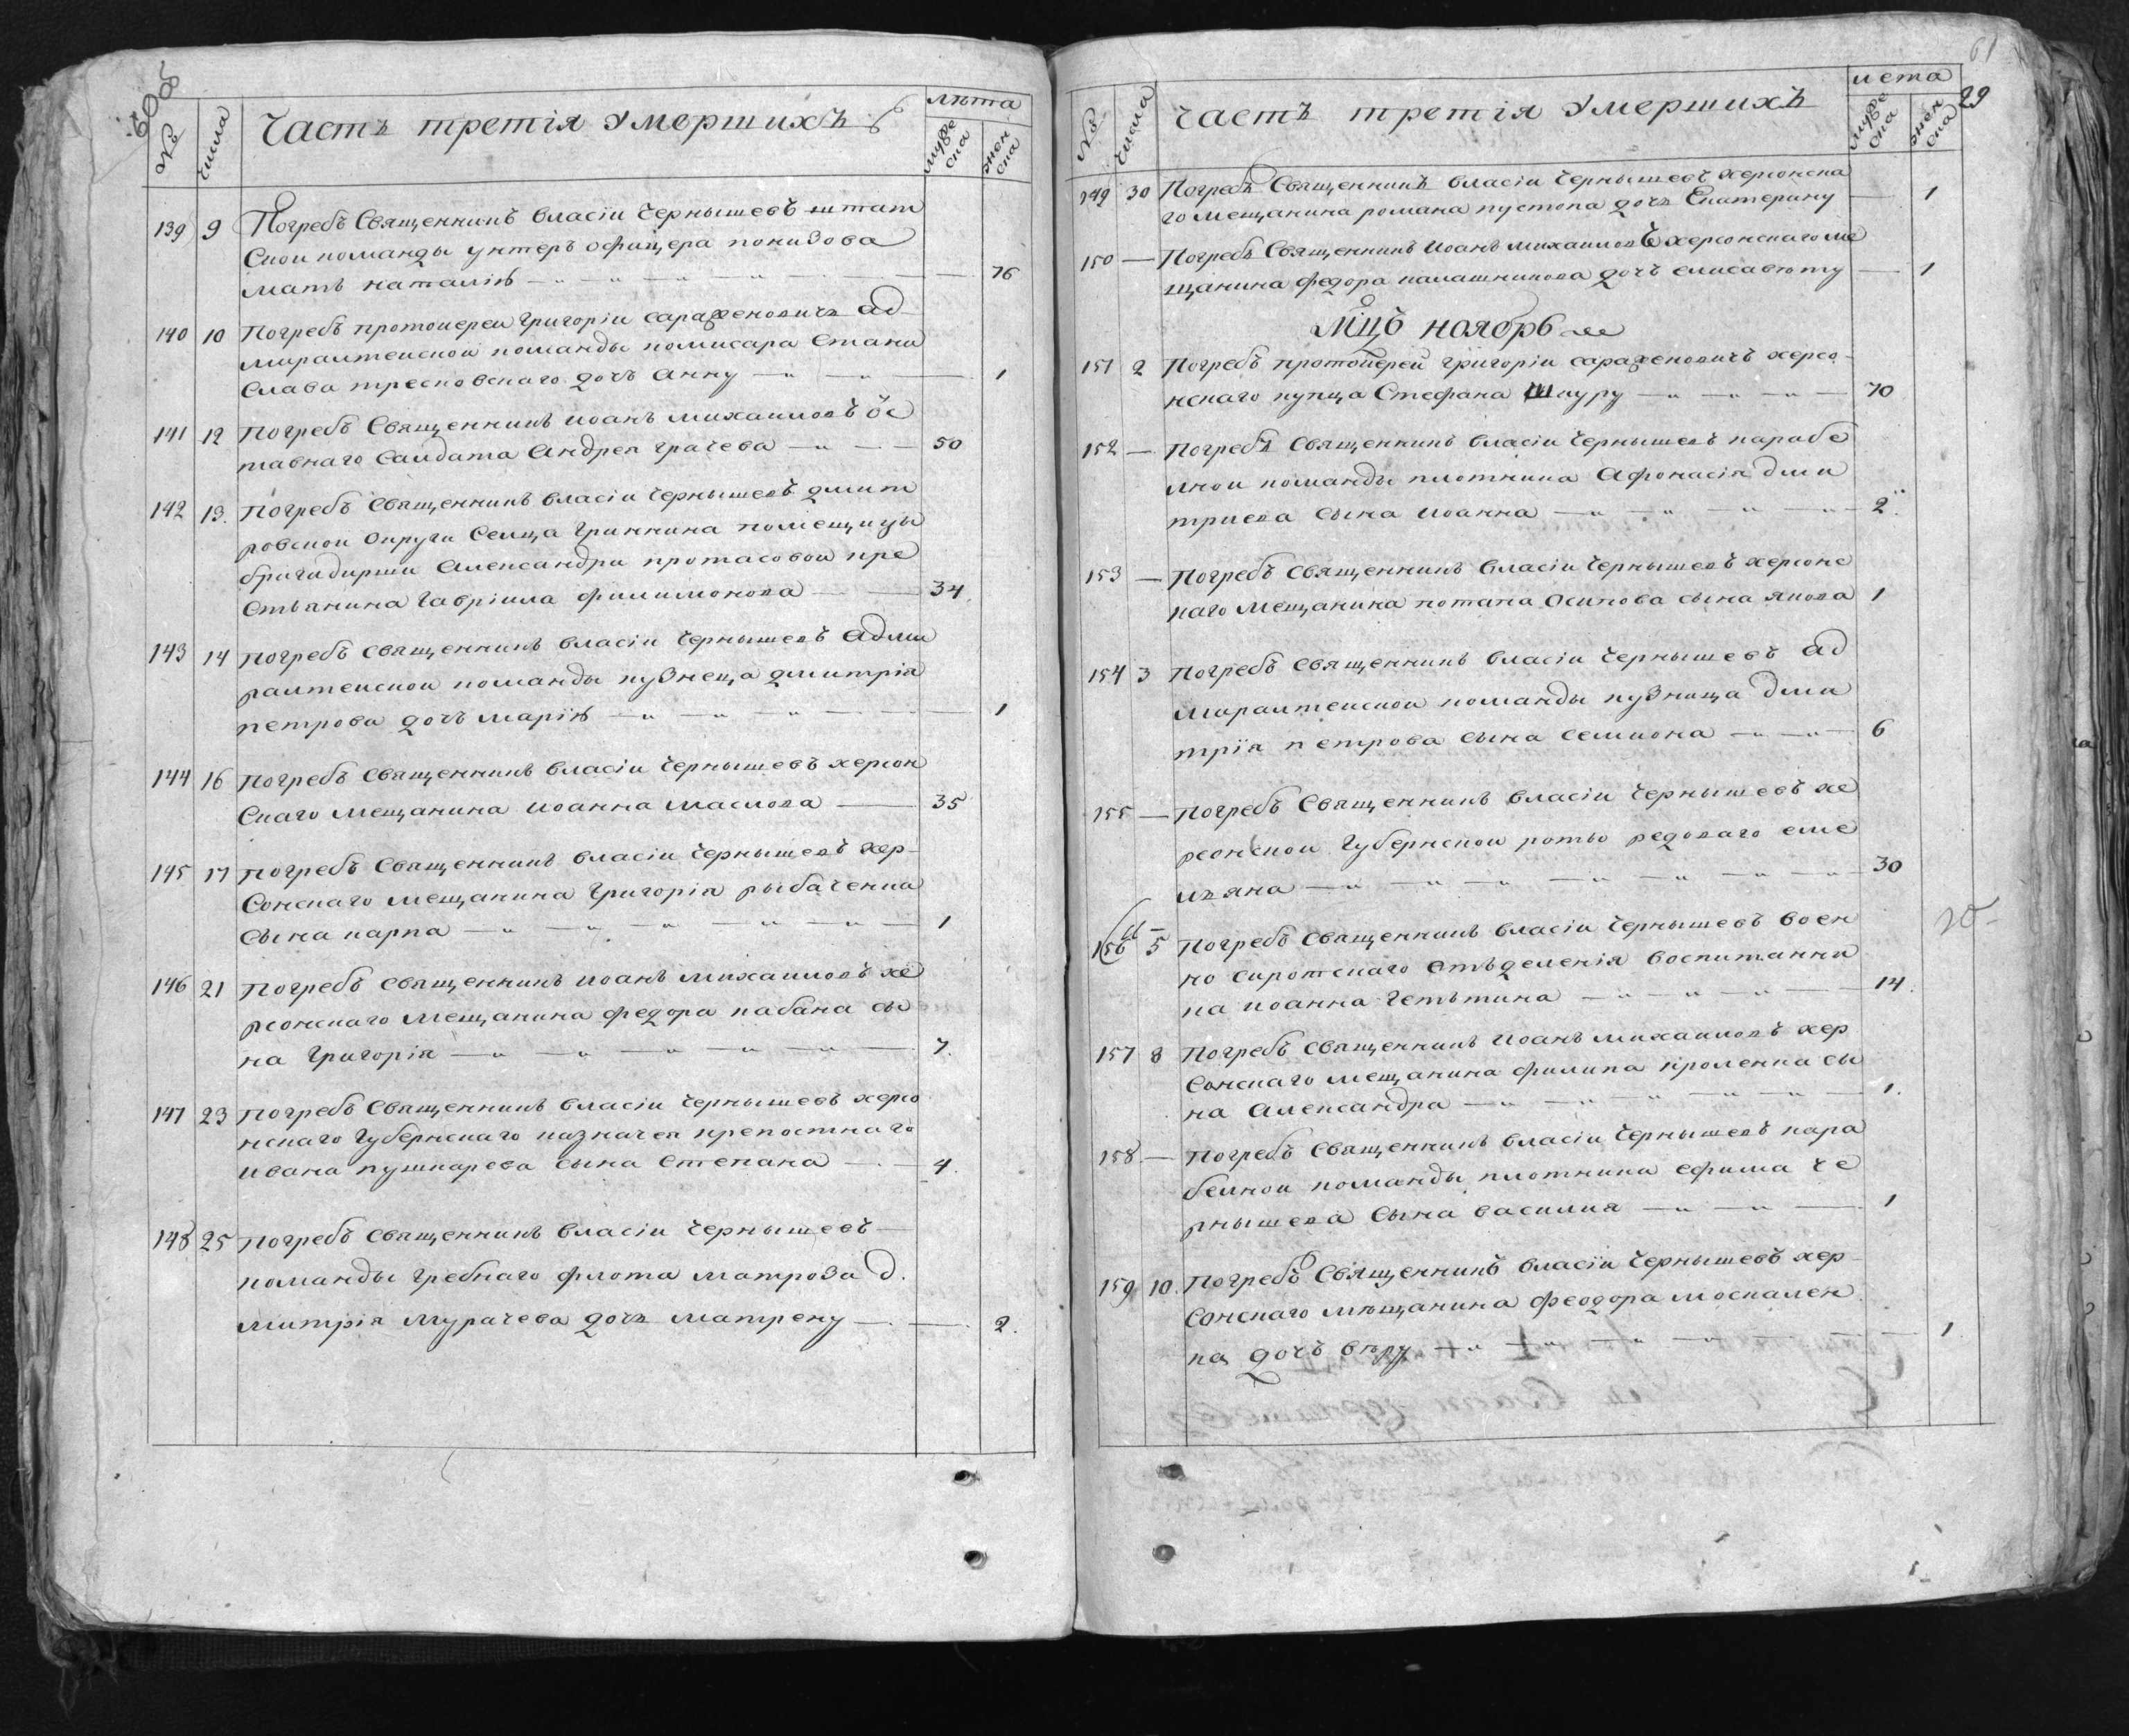 60об
№
числа
Часть третія Умершихъ
лѣта
муже
ска
жен
ска
139 9 Погребъ Священникъ Власіи Чернышевъ штат
Скои команды унтеръ офицера понизова
мать наталію 76
140 10 Погребъ протоиереи Григоріи сарафеновичъ Ад
миралтеиской команды комисара Стани
Слава тресковскаго дочь Анну 1
141 12 Погребъ Священникъ Иоанъ михаиловъ ѿс
тавнаго Салдата Андрея грачева 50
142 13. Погребъ Священникъ Власіи Чернышевъ дмит
ровскои округи Селца Гринкина помещицы
бригадирши Александри протасовои кре
стьянина Гавріила филимонова 34
143 14 Погребъ Священникъ Власіи Чернышевъ Адми
ралтеискои команды кузнеца дмитрія
петрова дочь марію 1
144 16 Погребъ Священникъ Власіи Чернышевъ херсон
Скаго мещанина Иоанна маслова 35
145 17 Погребъ Священникъ Власіи Чернышевъ хер
Сонскаго мещанина Григорія рыбаченка
Сына карпа 1
146 21 Погребъ Священникъ Иоанъ михаиловъ хе
рсонскаго мещанина федора кабана сы
на Григорія 7.
147 23 Погребъ Священникъ Власіи Чернышевъ херсо
нскаго Губернскаго казначея крепостнаго
Ивана пушкарева сына Степана 4.
148 25 Погребъ Священникъ Власіи Чернышевъ
команды Гребнаго флота матроза д.
митрія Мурачева дочь матрену 2.
61
29
№
числа
Часть третія Умершихъ
лета
муже
ска
жен
ска
149 30 Погребъ Священникъ Власіи Чернышевъ херсонска
го мещанина романа пустока дочь Екатерину 1
150 — Погребъ Священникъ Иоанъ михаиловъ херсонскаго ме
щанина федора калашникова дочь елисавету 1
Мцъ ноябрь
151 2 Погребъ протоіерей Григоріи сарафеновичъ херсо
нскаго купца Стефана Шкуру 70
152 — Погребъ Священникъ Власіи Чернышевъ карабе
лнои команды плотника Афонасія дми
триева сына Иоанна 2.
153 — Погребъ Священникъ Власіи Чернышевъ херсонс
каго мещанина потапа Осипова сына якова 1
154 3 Погребъ Священникъ Власіи Чернышевъ Ад
миралтеискои команды кузница дми
трія петрова сына семиона 6
155 — Погребъ Священникъ Власіи Чернышевъ хе
рсонскои Губернскои роты редоваго еме
льяна 30
156 5 Погребъ Священникъ Власіи Чернышевъ воен
но сиротскаго отъделенія воспитанни
ка Иоанна Гетьтина 14.
157 8 Погребъ Священникъ Иоанъ михаиловъ хер
Сонскаго мещанина филипа кроленка сы
на Александра 1.
158 — Погребъ Священникъ Власіи Чернышевъ кара
белнои команды плотника ефима че
рнышева сына василия 1
159 10. Погребъ Священникъ Власіи Чернышевъ хер
Сонскаго мѣщанина феодора москален
ка дочь вѣру 1